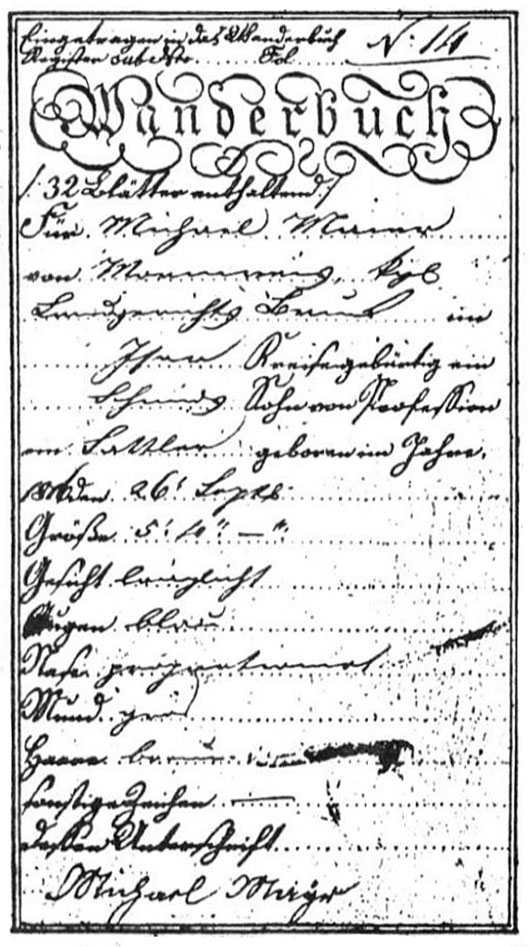 Eingetragen in das Wanderbuch
Register sub Nro. Fol. N: 14
Wanderbuch
/: 32 Blätter enthaltend :/
Für Michael Maier
von kgl
Landgerichts Bruck im
Isar Kreise gebürtig ein
Schmids Sohn von Profession
ein Sattler geboren im Jahre
den 26t Septb
Größe 5' 10" — "'
Gesicht länglicht
Augen blau
Nase proportionirt
Mund
Haare braun
sonstige Zeichen —
dessen Unterschrift
Michael Mayr